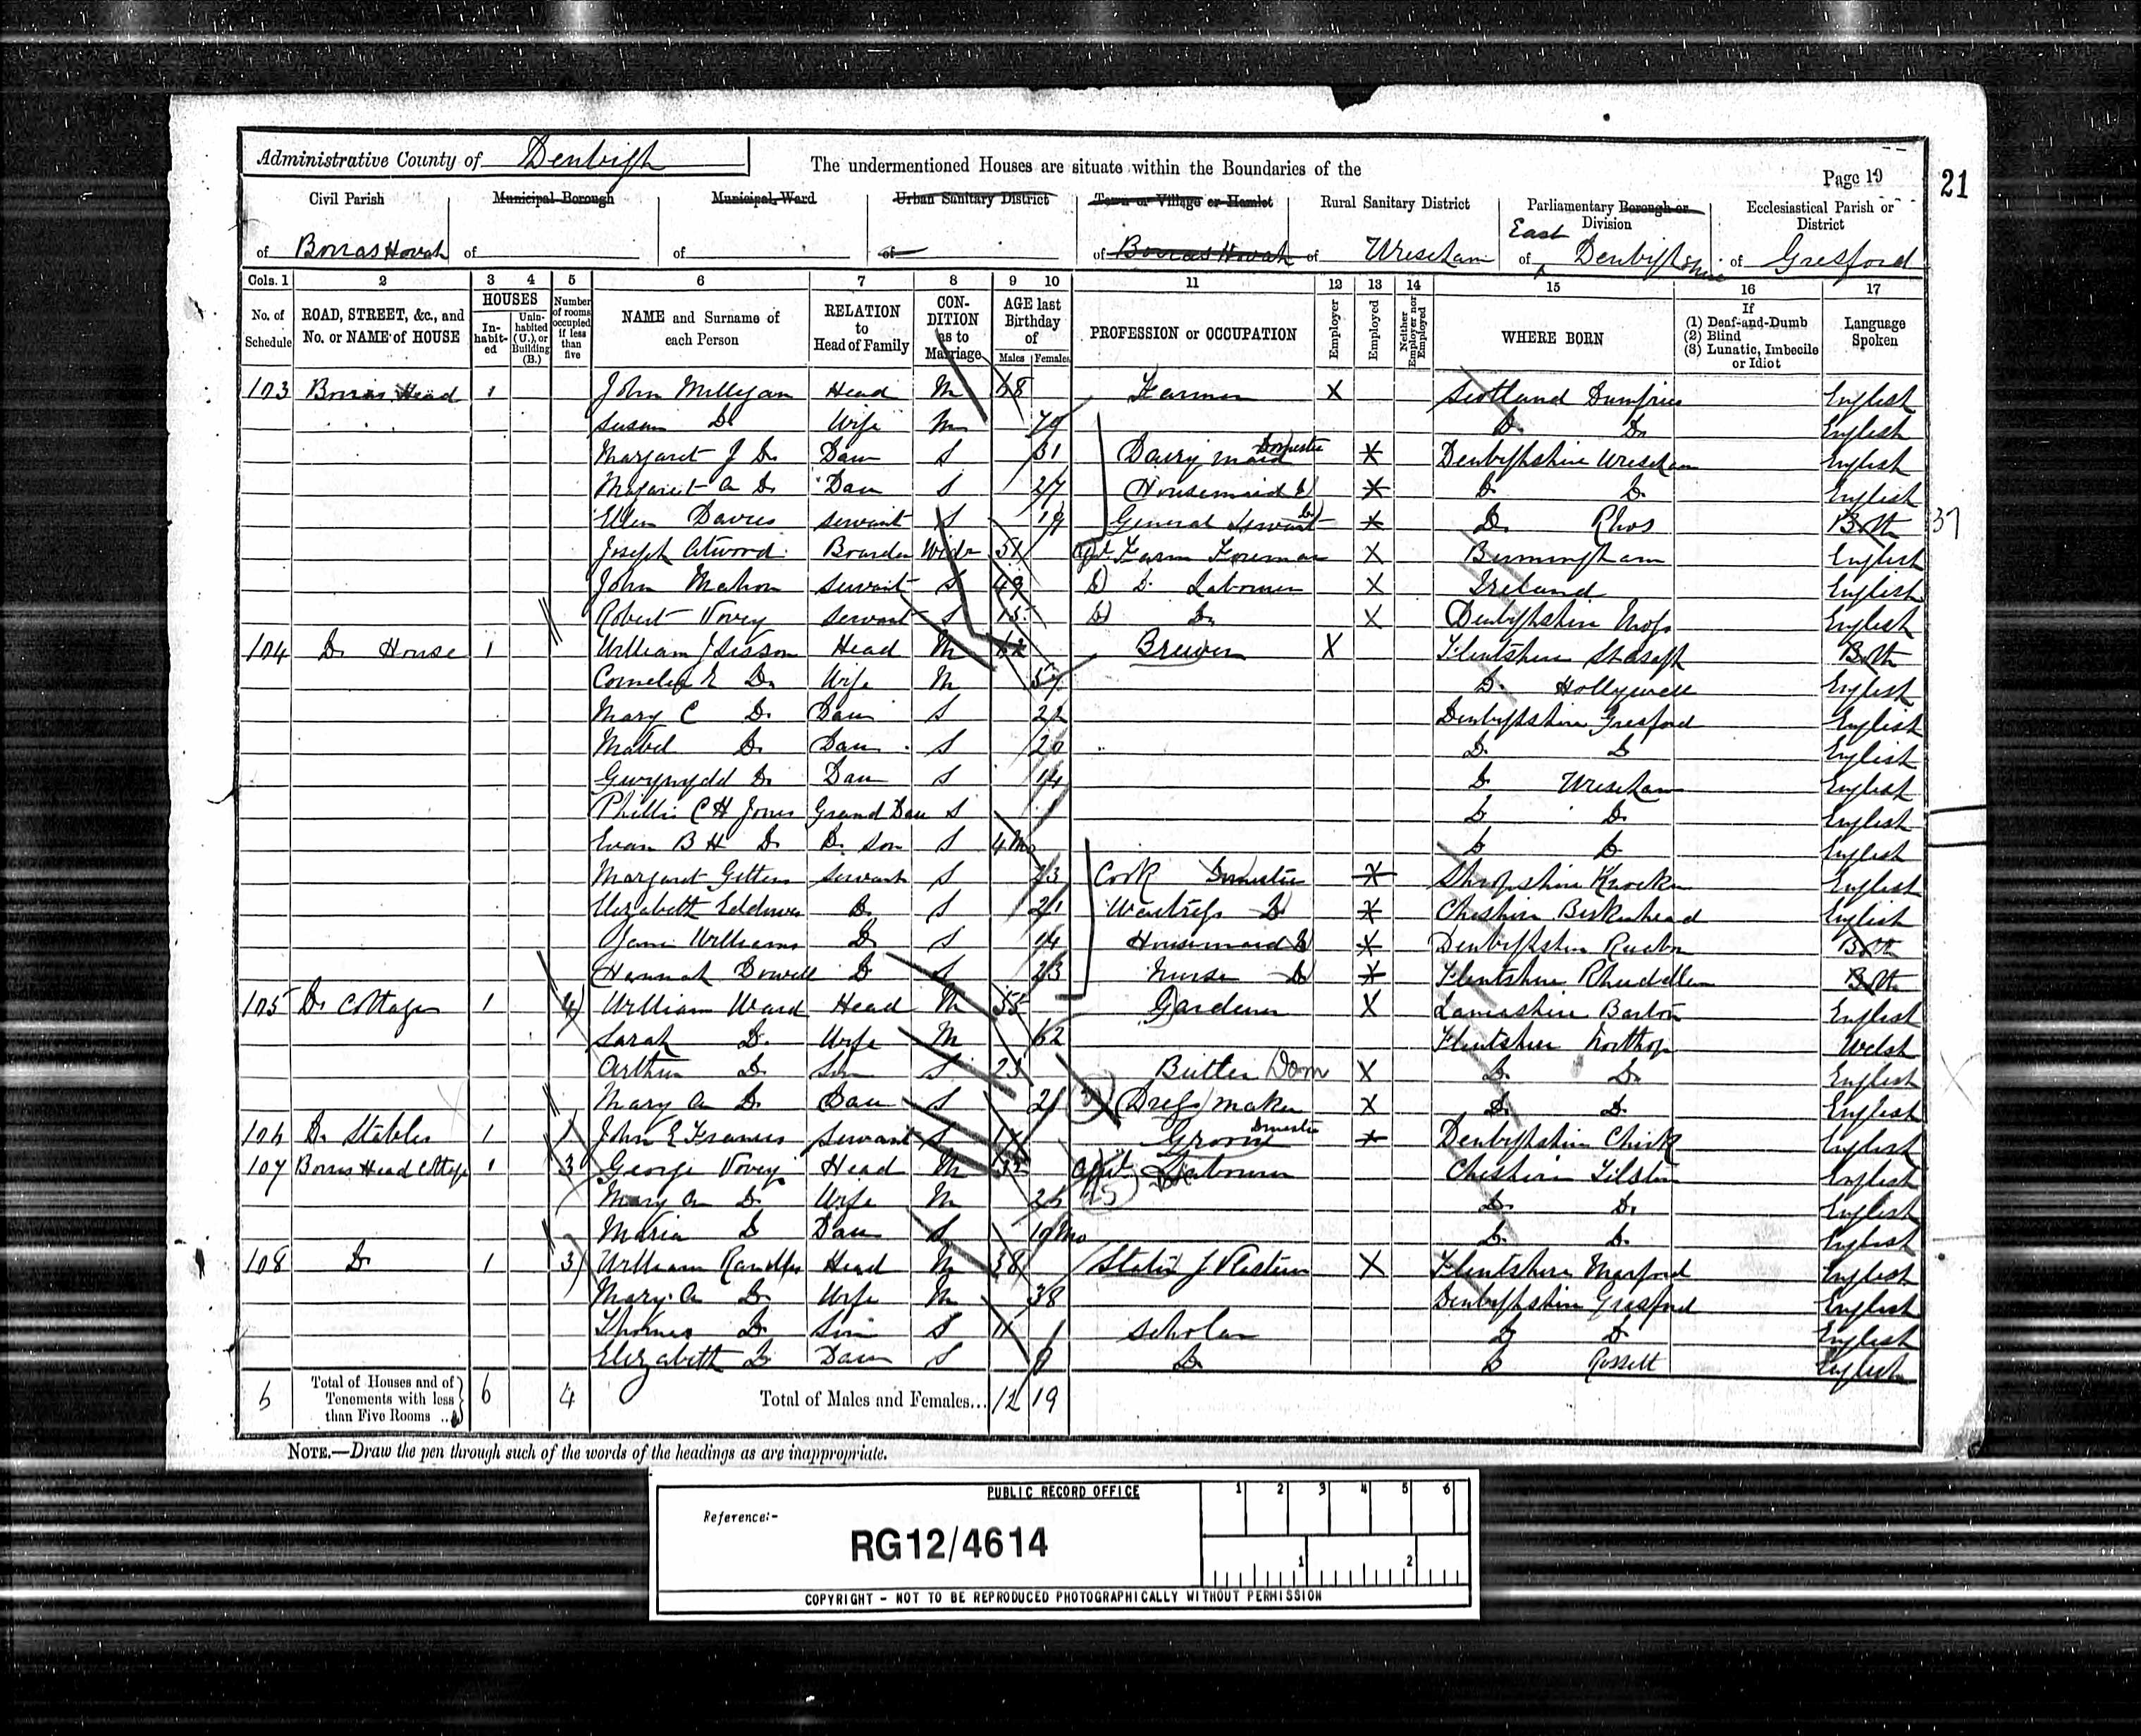 Administrative County of Denbigh
The undermentioned Houses are situate within the Boundaries of the
Page 19
21
Civil Parish Municipal Borough Municipal Ward Urban Sanitary District Town or Village or Hamlet Rural Sanitary District Parliamentary Borough or Division Ecclesiastical Parish or District
of Borras Hovah of of of of Borras Hovah of Wrexham of East Denbighshire of Gresford
Cols. 1 2 3 4 5 6 7 8 9 10 11 12 13 14 15 16 17
No. of Schedule ROAD, STREET, &c., and No. or NAME of HOUSE HOUSES Inhabited Uninhabited (U.), or Building (B.) Number of rooms occupied if less than five NAME and Surname of each Person RELATION to Head of Family CONDITION as to Marriage AGE last Birthday of Males Females PROFESSION or OCCUPATION Employer Employed Neither Employer nor Employed WHERE BORN If (1) Deaf-and-Dumb (2) Blind (3) Lunatic, Imbecile or Idiot Language Spoken
103 Borras Head 1 John Milligan Head M 68 Farmer X Scotland Dumfries English
Susan Do Wife M 70 Do Do English
Margaret J Do Daur S 31 Dairy maid Domestic X Denbighshire Wrexham English
Margaret A Do Dau S 27 Housemaid D X Do Do English
Ellen Davies servant S 19 General Servant X Do Rhos Both 37
Joseph Atwood Boarder Widr 51 Farm Foreman X Birmingham English
John Mahon servant S 49 Do Do Labourer X Ireland English
Robert Vovey servant S 15 Do Do X Denbighshire English
104 Do House 1 William J Sisson Head M 62 Brewer X Flintshire St Asaph Both
Cornelia E Do Wife M 57 Do Hollywell English
Mary C Do Daur S 22 Denbighshire Gresford English
Mabel Do Daur S 20 Do Do English
Gwynydd Do Dau S 14 Do Wrexham English
Phillis C H Jones Grand Dau S 1 Do Do English
Evan B H Do Do son S 4 Mo Do Do English
Margaret Gittens servant S 23 Cook Domestic X Shropshire English
Elizabeth Do S 21 Waitress Do X Cheshire Birkenhead English
Jane Williams Do S 14 Housemaid D X Denbighshire Ruabon Both
Hannah Dowell Do S 23 Nurse D X Flintshire Both
105 Do Cottage 1 4 William Ward Head M 55 Gardener X Lancashire Barton English
Sarah Do Wife M 62 Flintshire Northop Welsh
Arthur Do Son S 23 Butler Dom X Do Do English
Mary A Do Dau S 21 Dress maker X Do Do English
106 Do Stables 1 1 John E Francis Servant S Groom Domestic X Denbighshire Chirk English
107 Borras Head Cottage 1 3 George Vovey Head M 32 Labourer Cheshire Tilston English
Mary A Do Wife M 26 Do Do English
Maria Do Dau S 10 Mo Do Do English
108 Do 1 3 William Randles Head M 38 X Flintshire Marford English
Mary A Do Wife M 38 Denbighshire Gresford English
Thomas Do Son S 11 Scholar Do Do English
Elizabeth Do Daur S Do Do Rossett English
6 Total of Houses and of Tenements with less than Five Rooms 6 4 Total of Males and Females... 12 19
NOTE.—Draw the pen through such of the words of the headings as are inappropriate.
PUBLIC RECORD OFFICE
1 2 3 4 5 6
Reference:-
RG12/4614
1 2
COPYRIGHT - NOT TO BE REPRODUCED PHOTOGRAPHICALLY WITHOUT PERMISSION